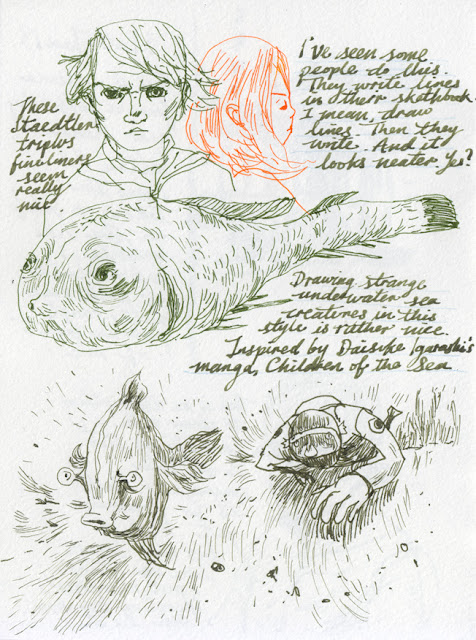 I've seen some
people do this.
They write lines
in their skethbook.
I mean, draw
lines. Then they
write. And it
looks neater. Yes?
These
Staedtler
triplus
fineliners
seem
really
nice.
Drawing strange
underwater sea
creatures in this
style is rather nice.
Inspired by Daisuke Igarashi's
manga, Children of the Sea